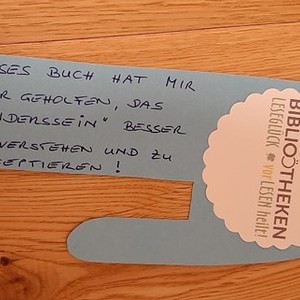 SES BUCH HAT MIR
R GEHOLFEN, DAS
NDERSSEIN" BESSER
VERSTEHEN UND ZU
EPTIEREN !
BIBLIÖTHEKEN
LESEGLÜCK
vorLESEN